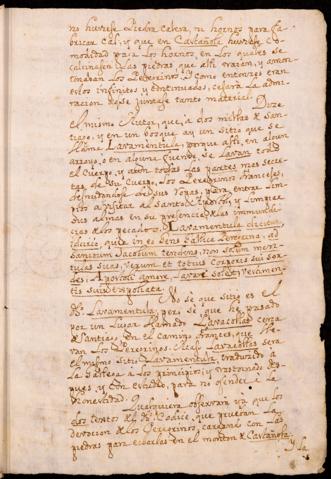 no huviesse Piedra calera, ni hornos para fa-
bricar Cal; y que en Castañola huviesse co-
modidad para los hornos, en los quales se
calcinassen las Piedras que assi traian, y amon-
tonaban Los Peregrinos. Y como entonces eran
estos infinitos y continuados, cessará la admi-
racion de se juntasse tanto material.
Dize
el mismo Autor, que, à dos millas de San-
tiago, y en un bosque ay un sitio que se
llama Lavamentula, porque assi, en algun
arroyo, o en alguna fuente, se Lavan todo
el Cuerpo, y aun todas las partes mas secre-
tas de su Cuerpo, Los Peregrinos franceses,
desnudandose de sus ropas, para entrar lim-
pios a visitar al Santo Iacobo, y limpiar
sus almas en su presencia de las immundi-
cias de los pecados. Lavamentula
dicitur, quia in eo Gens Gallica Peregrina, ad
Sanctum Jacobum tendens, non solum men-
tulas suas, verum et totius corporis sui sor-
des, Apostoli amore, lavare solet, vestimen-
tis suis expoliata.
No sè que sitio es el
de Lavamentula, pero sè, que he passado
por un Lugar llamado Lavacolla cerca
de Santiago, en el camino frances que lle-
van Los Peregrinos.
el mismo sitio Lavamentula, traducido a
lo Gallego a los principios, y trastornado des-
pues, y con cuidado, para no ofender a la
Honestidad.
Quisiera observàra ya que los
dos textos del Codice, que prueban la
devocion de los Peregrinos, cargados con las
piedras para echarlas en el monton de Castañola,
y la